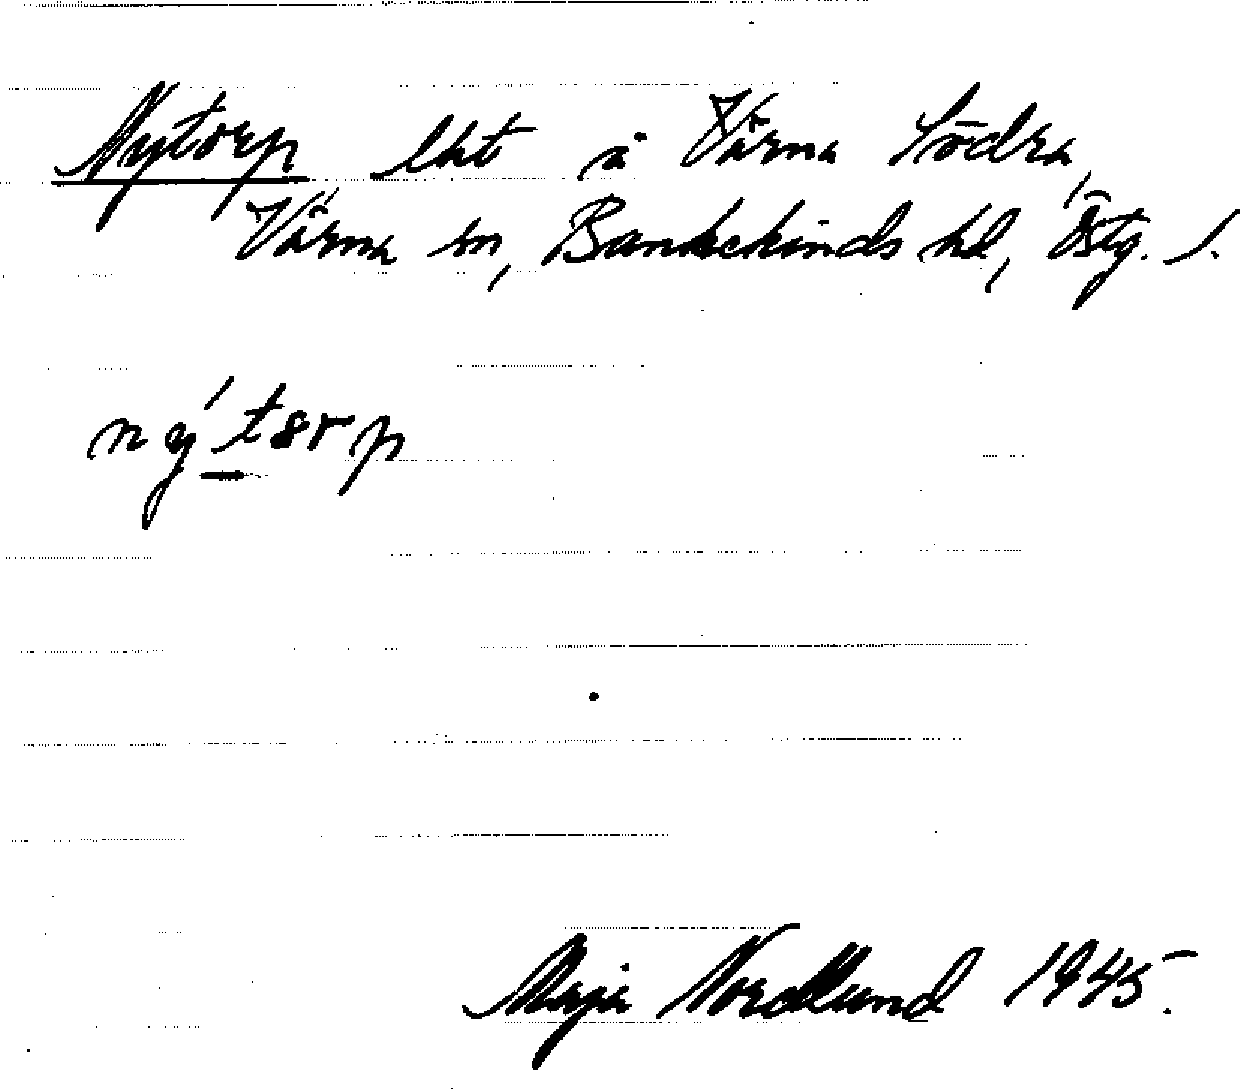 Nytorp lht å Värna Södra,
Värna sn, Bankekinds hd, Östg. l.
nýtorp
Maja Nordlund 1945.